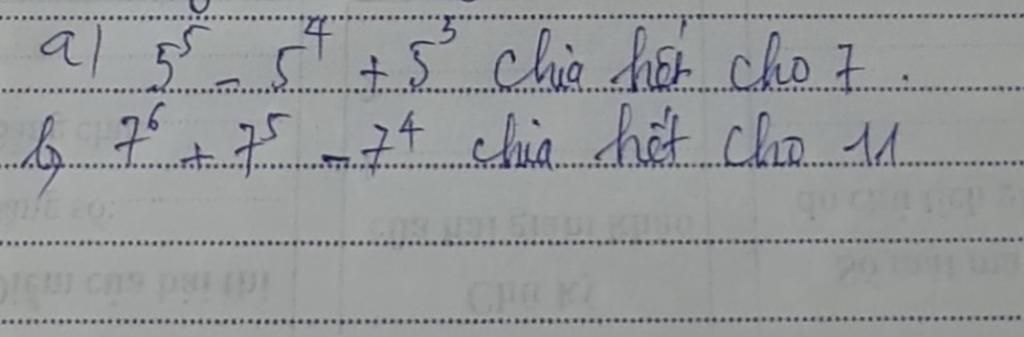 a) 5⁵ - 5⁴ + 5³ chia hết cho 7.
b, 7⁶ + 7⁵ - 7⁴ chia hết cho 11